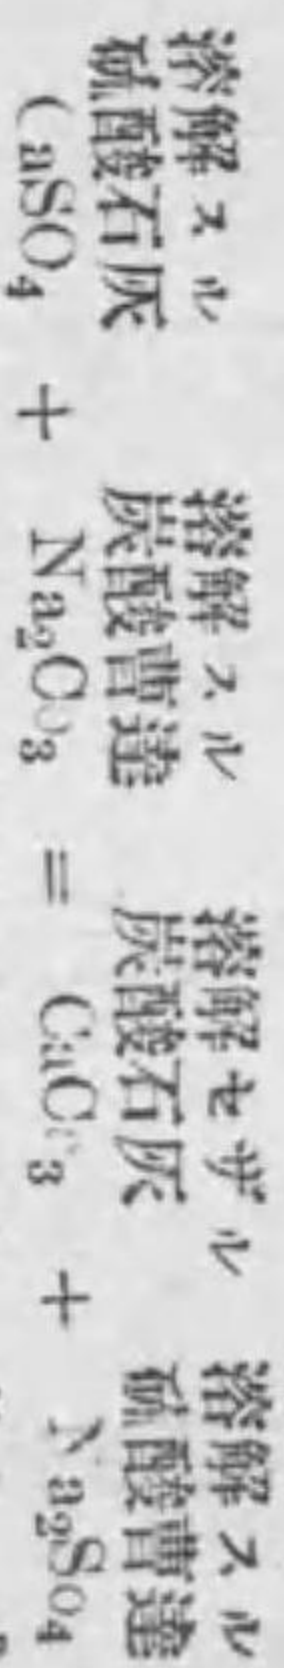 溶解スル
硫酸石灰
CaSO4
+
溶解スル
炭酸曹達
Na2CO3
=
溶解セザル
炭酸石灰
CaCO3
+
溶解スル
硫酸曹達
Na2SO4